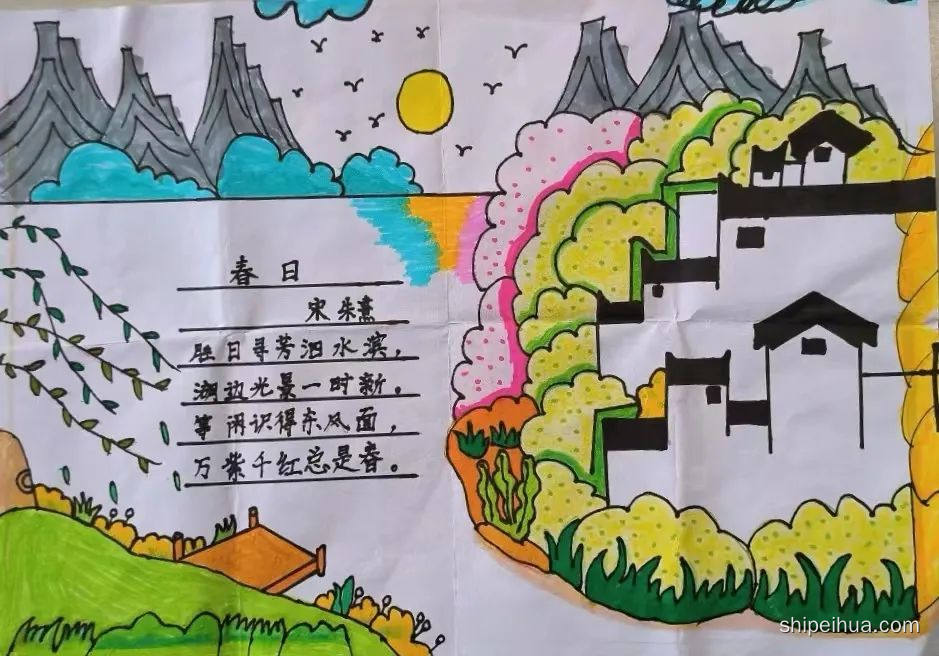 春日
宋 朱熹
胜日寻芳泗水滨，
湖边光景一时新。
等闲识得东风面，
万紫千红总是春。
shipeihua.com